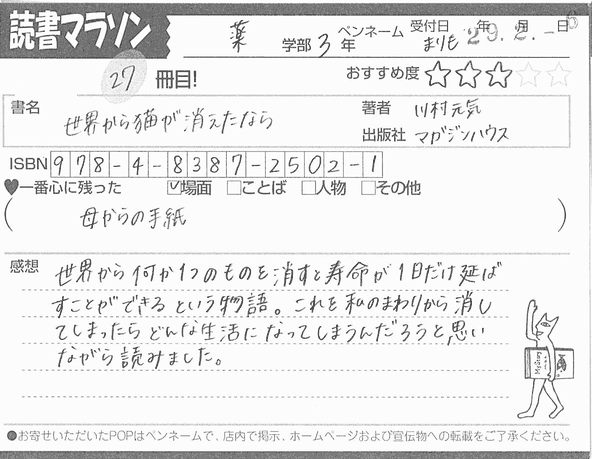 読書マラソン
薬 学部 3 年 ペンネーム まりも 受付日 29年 2.月 -日
27 冊目! おすすめ度 ★★★☆☆
書名 世界から猫が消えたなら
著者 川村元気
出版社 マガジンハウス
ISBN 978-4-8387-2502-1
♥一番心に残った ☑場面 □ことば □人物 □その他
( 母からの手紙 )
感想 世界から何か1つのものを消すと寿命が1日だけ延ば
すことができるという物語。これを私のまわりから消し
てしまったらどんな生活になってしまうんだろうと思い
ながら読みました。
●お寄せいただいたPOPはペンネームで、店内で掲示、ホームページおよび宣伝物への転載をご了承ください。